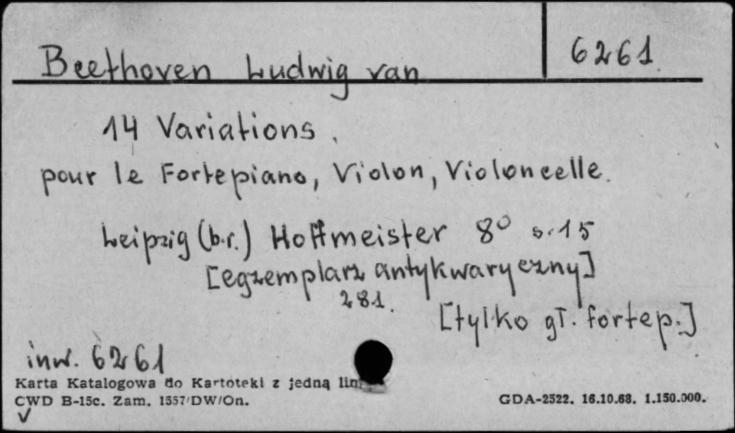 Beethoven Ludwig van 6261
14 Variations.
pour le Fortepiano, Violon, Violoncelle.
Leipzig (b.r.) Hoffmeister 8° s. 15
[egzemplarz antykwaryczny]
281.
[tylko gł. fortep.]
inw. 6261
Karta Katalogowa do Kartoteki z jedną
CWD B-15c. Zam. 1557/DW/On. GDA-2522. 16.10.68. 1.150.000.